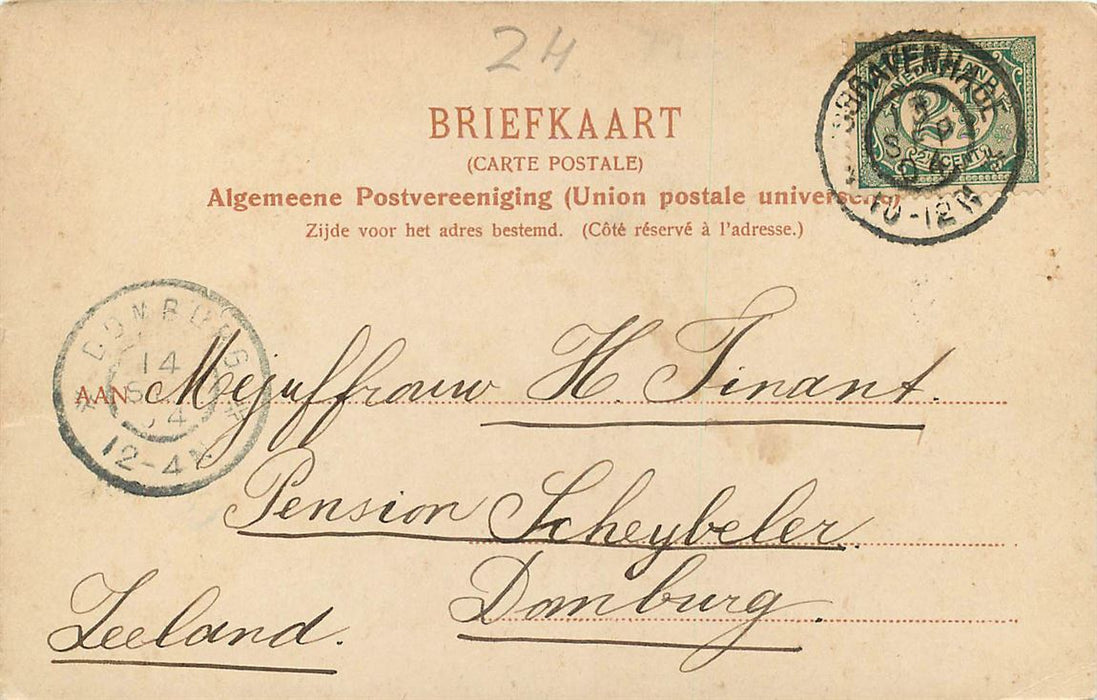 24
BRIEFKAART
(CARTE POSTALE)
Algemeene Postvereeniging (Union postale universelle)
Zijde voor het adres bestemd. (Côté réservé à l'adresse.)
NEDERLAND
2½
2½ CENT
'SGRAVENHAGE
10-12N
DOMBURG
14
04
12-4N
AAN Mejuffrouw H. Tinant.
Pension Scheybeler.
Domburg.
Zeeland.